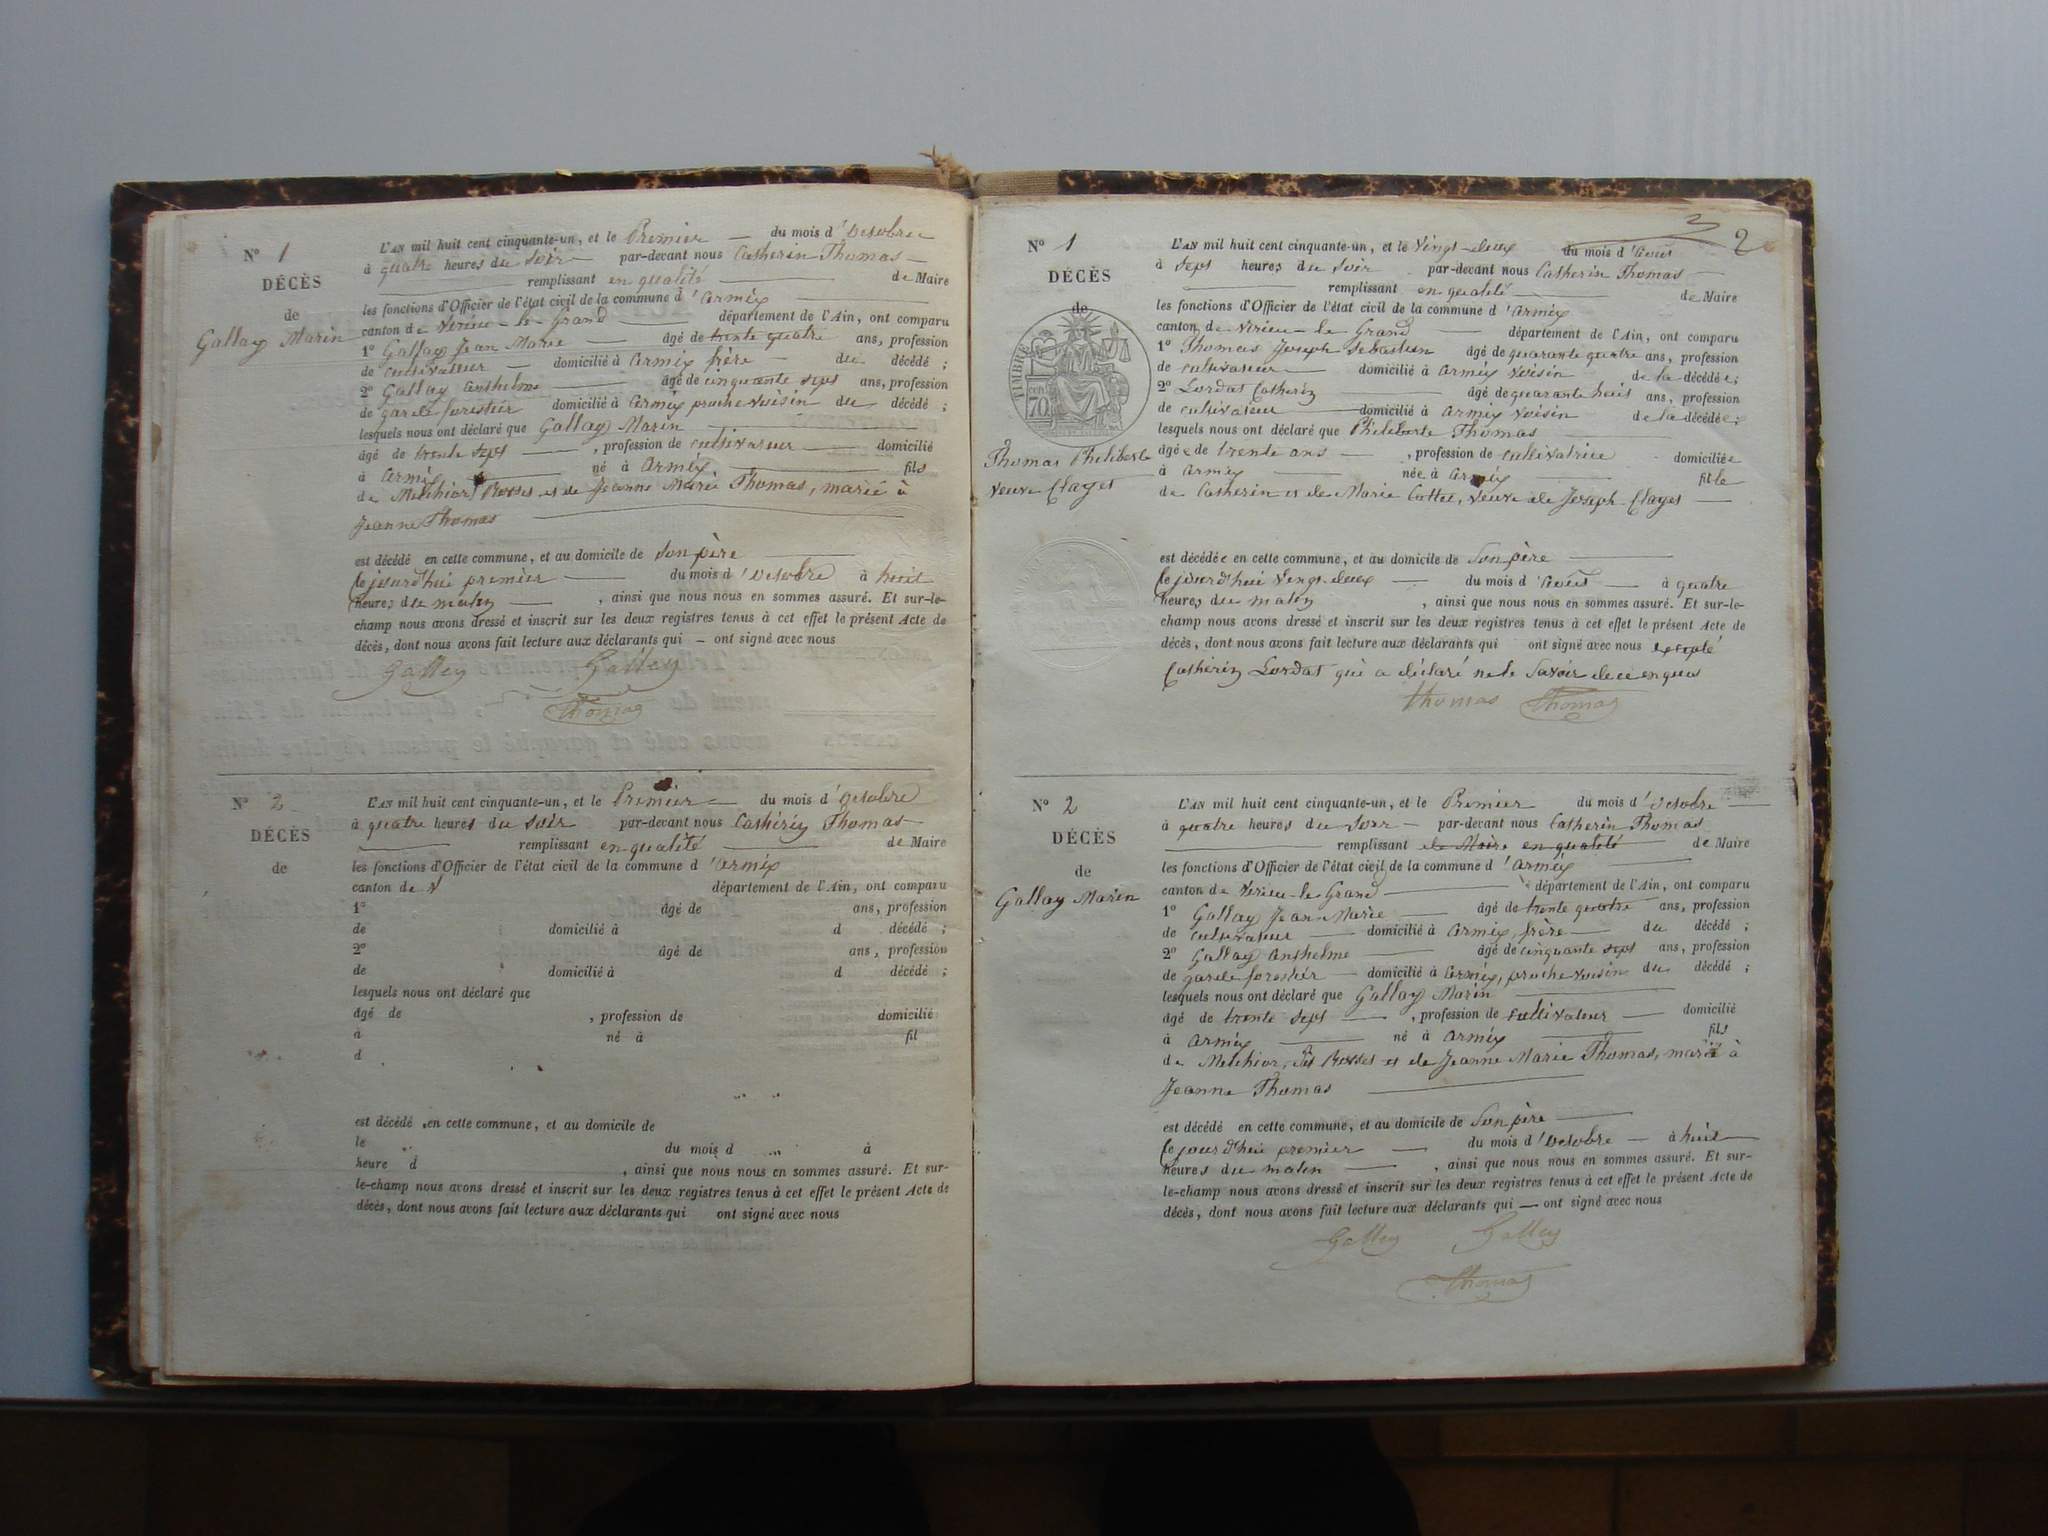 N° 1
DÉCÈS
de
Gallay Marin
L'AN mil huit cent cinquante-un, et le Premier du mois d'Octobre
à quatre heures du Soir par-devant nous Catherin Thomas
remplissant en qualité de Maire
les fonctions d'Officier de l'état civil de la commune d'Armix
canton de Virieu-le-Grand département de l'Ain, ont comparu
1° Gallay Jean Marie âgé de trente quatre ans, profession
de cultivateur domicilié à Armix frère du décédé ;
2° Gallay Anthelme âgé de cinquante sept ans, profession
de garde forestier domicilié à Armix proche voisin du décédé ;
lesquels nous ont déclaré que Gallay Marin
âgé de trente sept , profession de cultivateur domicilié
à Armix né à Armix, fils
de Melchior Rosset et de Jeanne Marie Thomas, marié à
Jeanne Thomas
est décédé en cette commune, et au domicile de Son père
Cejourd'hui premier du mois d'Octobre à huit
heures du matin , ainsi que nous nous en sommes assuré. Et sur-le-
champ nous avons dressé et inscrit sur les deux registres tenus à cet effet le présent Acte de
décès, dont nous avons fait lecture aux déclarants qui – ont signé avec nous
Galley Galley
Thomas
N° 2
DÉCÈS
de
L'AN mil huit cent cinquante-un, et le Premier du mois d'Octobre
à quatre heures du Soir par-devant nous Catherin Thomas
remplissant en qualité de Maire
les fonctions d'Officier de l'état civil de la commune d'Armix
canton de V département de l'Ain, ont comparu
1° âgé de ans, profession
de domicilié à d décédé ;
2° âgé de ans, profession
de domicilié à d décédé ;
lesquels nous ont déclaré que
âgé de , profession de domicilié
à né à fil
d
est décédé en cette commune, et au domicile de
le du mois d à
heure d , ainsi que nous nous en sommes assuré. Et sur-
le-champ nous avons dressé et inscrit sur les deux registres tenus à cet effet le présent Acte de
décès, dont nous avons fait lecture aux déclarants qui ont signé avec nous
2
N° 1
DÉCÈS
de
TIMBRE
70
Thomas Philiberte
veuve Clayet
L'AN mil huit cent cinquante-un, et le Vingt-deux du mois d'Août
à Sept heures du Soir par-devant nous Catherin Thomas
remplissant en qualité de Maire
les fonctions d'Officier de l'état civil de la commune d'Armix
canton de Virieu-le-Grand département de l'Ain, ont comparu
1° Thomas Joseph Sebastien âgé de quarante quatre ans, profession
de cultivateur domicilié à Armix voisin de la décédée ;
2° Lordat Catherin âgé de quarante huit ans, profession
de cultivateur domicilié à Armix voisin de la décédée ;
lesquels nous ont déclaré que Philiberte Thomas
âgée de trente ans , profession de cultivatrice domiciliée
à Armix née à Armix fille
de Catherin et de Marie Cottet, veuve de Joseph Clayet
est décédée en cette commune, et au domicile de Son père
Cejourd'hui Vingt-deux du mois d'Août à quatre
heures du matin , ainsi que nous nous en sommes assuré. Et sur-le-
champ nous avons dressé et inscrit sur les deux registres tenus à cet effet le présent Acte de
décès, dont nous avons fait lecture aux déclarants qui ont signé avec nous excepté
Catherin Lordat qui a déclaré ne le Savoir de ce enquis
thomas Thomas
N° 2
DÉCÈS
de
Gallay Marin
L'AN mil huit cent cinquante-un, et le Premier du mois d'Octobre
à quatre heures du Soir par-devant nous Catherin Thomas
remplissant de Maire en qualité de Maire
les fonctions d'Officier de l'état civil de la commune d'Armix
canton de Virieu-le-Grand département de l'Ain, ont comparu
1° Gallay Jean Marie âgé de trente quatre ans, profession
de cultivateur domicilié à Armix, frère du décédé ;
2° Gallay Anthelme âgé de cinquante sept ans, profession
de garde forestier domicilié à Armix, proche voisin du décédé ;
lesquels nous ont déclaré que Gallay Marin
âgé de trente sept , profession de cultivateur domicilié
à Armix né à Armix fils
de Melchior, Rosset et de Jeanne Marie Thomas, marié à
Jeanne Thomas
est décédé en cette commune, et au domicile de Son père
Cejourd'hui premier du mois d'Octobre à huit
heures du matin , ainsi que nous nous en sommes assuré. Et sur-
le-champ nous avons dressé et inscrit sur les deux registres tenus à cet effet le présent Acte de
décès, dont nous avons fait lecture aux déclarants qui — ont signé avec nous
Galley Galley
Thomas